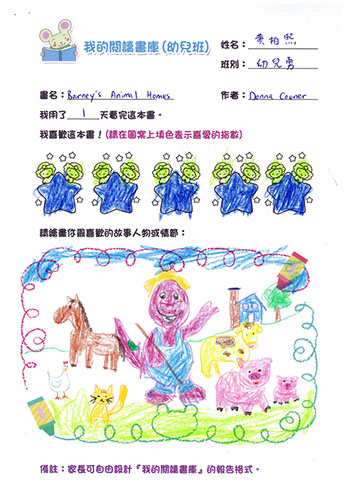 我的閱讀書庫(幼兒班)
姓名：葉柏熙
班別：幼兒勇
書名：Barney's Animal Homes 作者：Donna Cooner
我用了 1 天看完這本書。
我喜歡這本書！(請在圖案上填色表示喜愛的指數)
請繪畫你最喜歡的故事人物或情節：
備註：家長可自由設計『我的閱讀書庫』的報告格式。